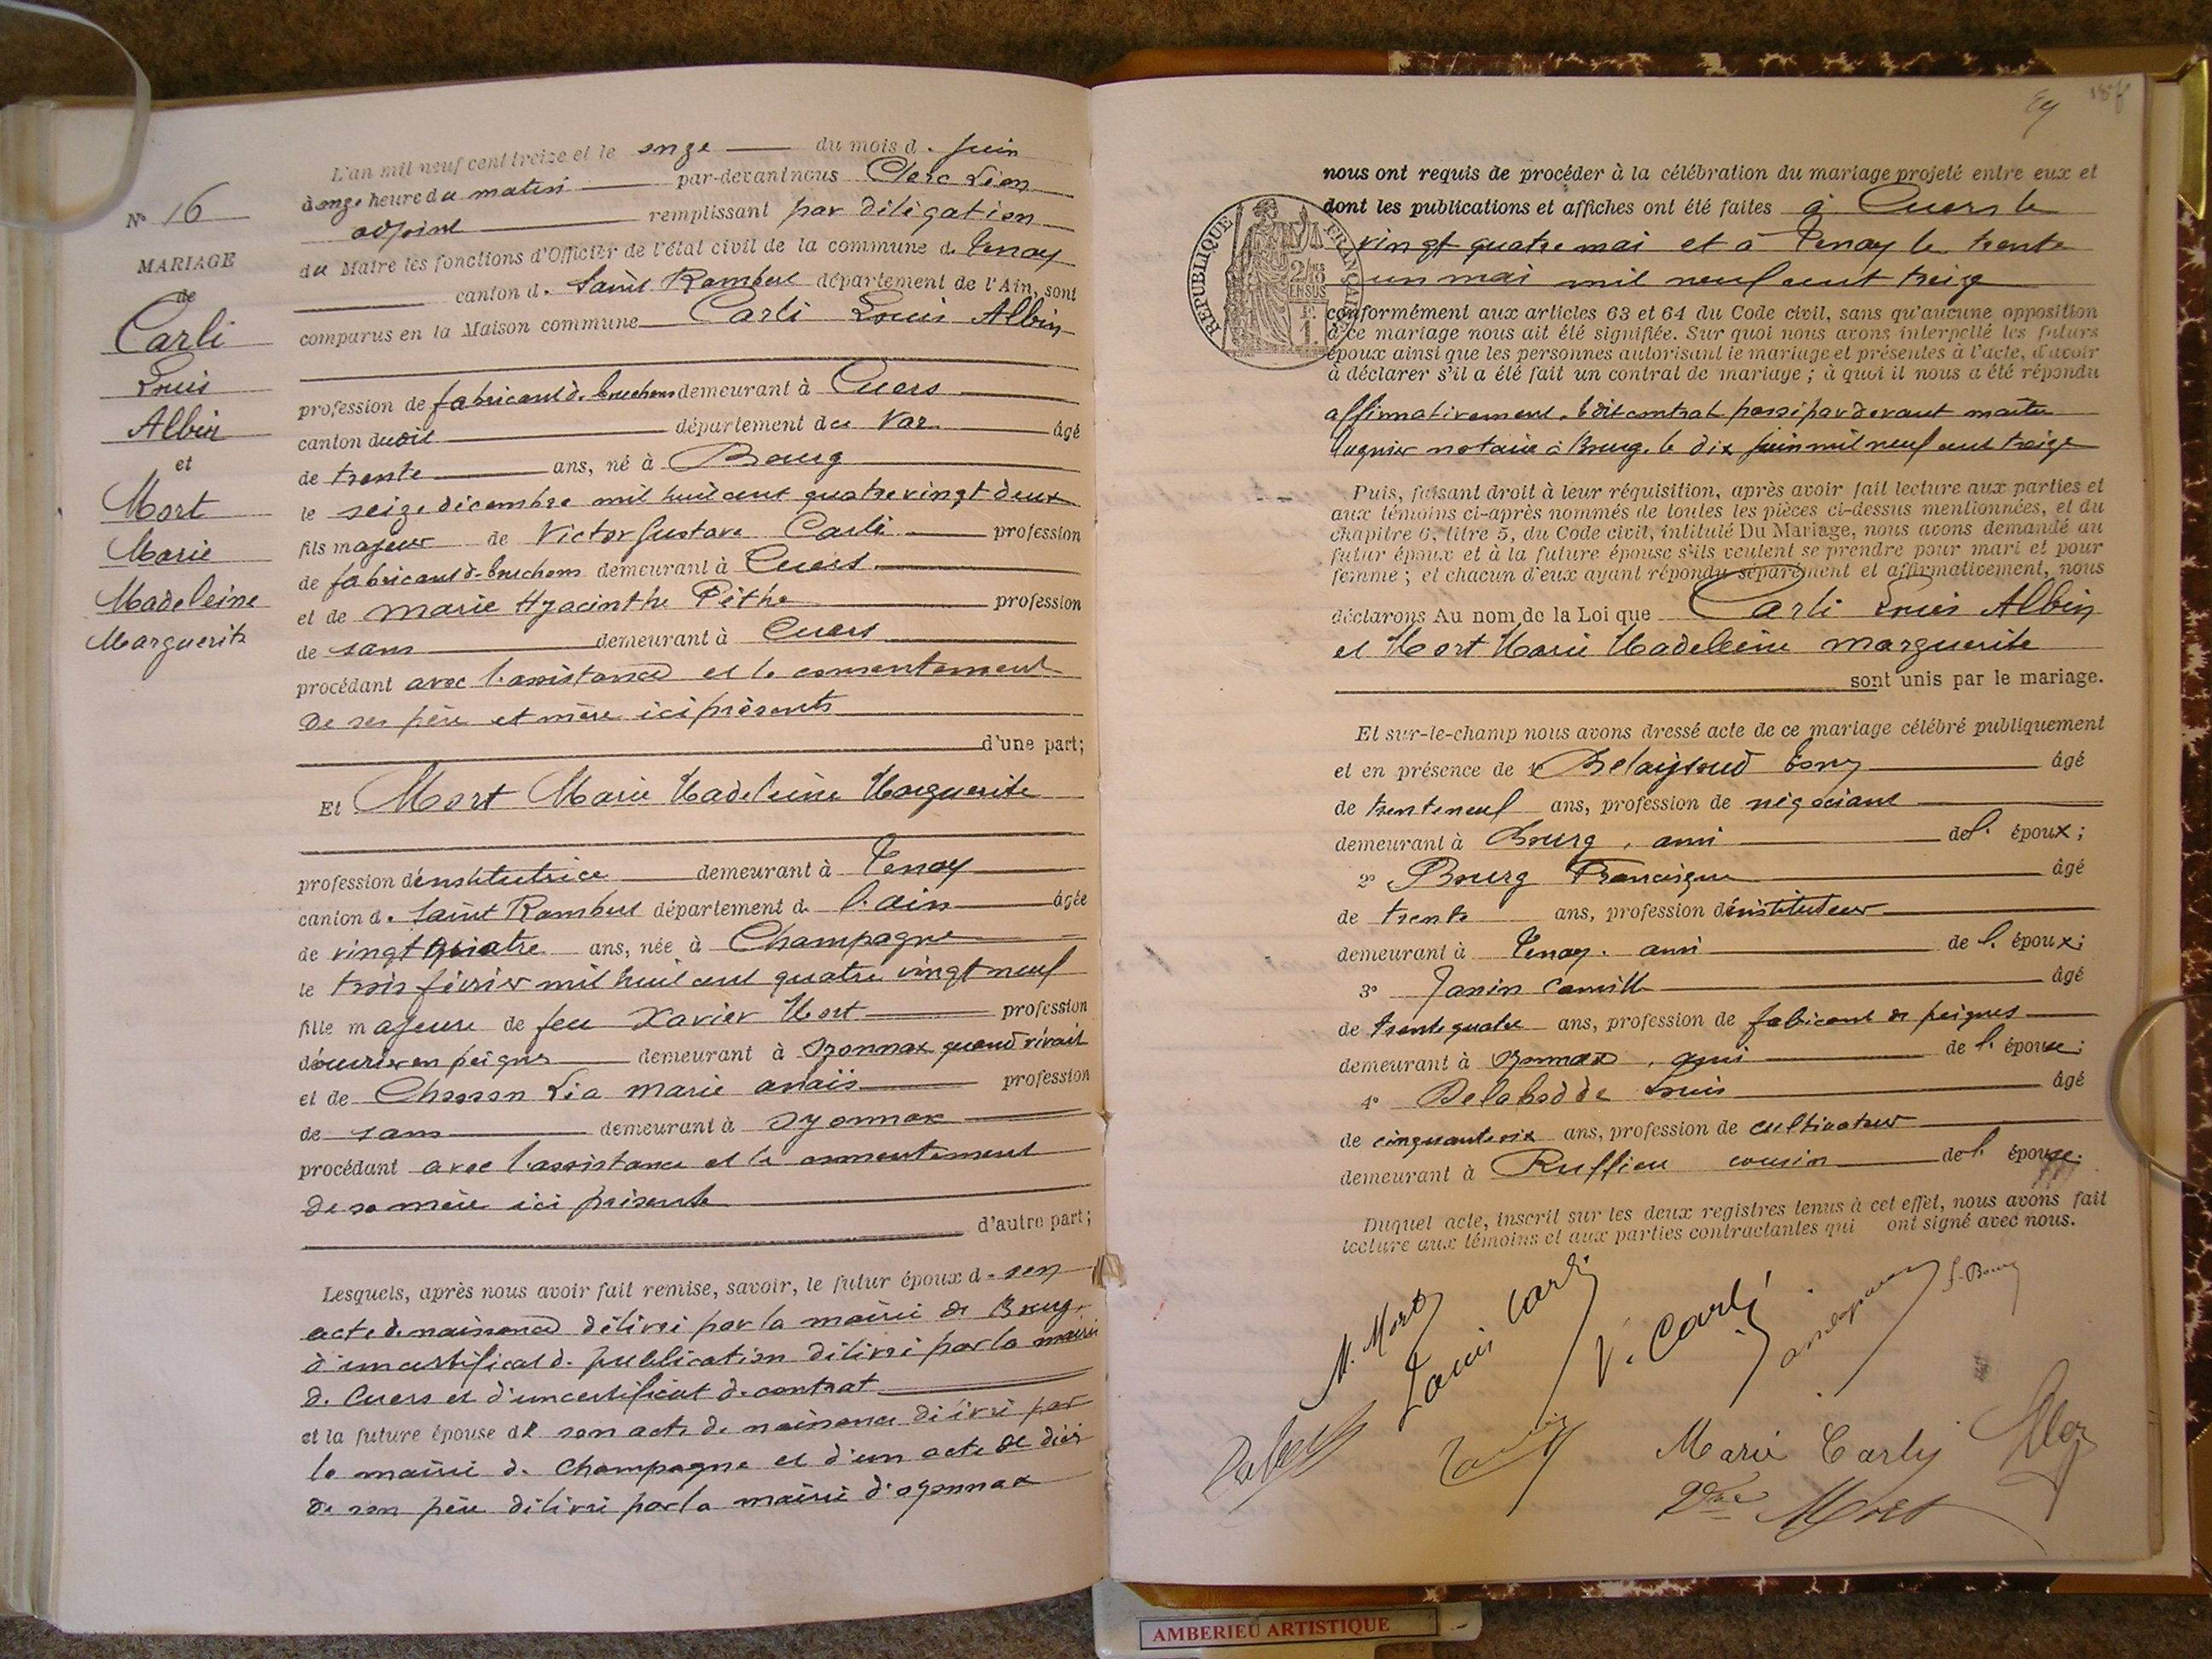 N° 16
MARIAGE
de
Carli
Louis
Albin
et
Mort
Marie
Madeleine
Marguerite
L'an mil neuf cent treize et le onze du mois d. Juin
à onze heure du matin par-devant nous Clerc Léon
adjoint remplissant par délégation
du Maire les fonctions d'Officier de l'état civil de la commune de Tenay
canton d. Saint Rambert département de l'Ain, sont
comparus en la Maison commune Carli Louis Albin
profession de fabricant d. bouchons demeurant à Cuers
canton dudit département du Var âgé
de trente ans, né à Bourg
le seize décembre mil huit cent quatre vingt deux
fils majeur de Victor Gustave Carli profession
de fabricant d. bouchons demeurant à Cuers
et de Marie Hyacinthe Pèthe profession
de sans demeurant à Cuers
procédant avec l'assistance et le consentement
de ses père et mère ici présents
d'une part;
Et Mort Marie Madeleine Marguerite
profession d'institutrice demeurant à Tenay
canton d. Saint Rambert département d. l'ain âgée
de vingt quatre ans, née à Champagne
le trois février mil huit cent quatre vingt neuf
fille majeure de feu Xavier Mort profession
d'ouvrier en peignes demeurant à Oyonnax quand vivait
et de Chosson Léa Marie anaïs profession
de sans demeurant à Oyonnax
procédant avec l'assistance et le consentement
de sa mère ici présente
d'autre part;
Lesquels, après nous avoir fait remise, savoir, le futur époux d. son
acte de naissance délivré par la mairie de Bourg,
d'un certificat d. publication délivré par la mairie
d. Cuers et d'un certificat de contrat
et la future épouse de son acte de naissance délivré par
la mairie d. Champagne et d'un acte de décès
de son père délivré par la mairie d'oyonnax
nous ont requis de procéder à la célébration du mariage projeté entre eux et
dont les publications et affiches ont été faites à Cuers le
vingt quatre mai et à Tenay le trente
un mai mil neuf cent treize
conformément aux articles 63 et 64 du Code civil, sans qu'aucune opposition
à ce mariage nous ait été signifiée. Sur quoi nous avons interpellé les futurs
époux ainsi que les personnes autorisant le mariage et présentes à l'acte, d'avoir
à déclarer s'il a été fait un contrat de mariage ; à quoi il nous a été répondu
affirmativement. Ledit contrat passé par devant maître
notaire à Bourg. le dix juin mil neuf cent treize
Puis, faisant droit à leur réquisition, après avoir fait lecture aux parties et
aux témoins ci-après nommés de toutes les pièces ci-dessus mentionnées, et du
chapitre 6, titre 5, du Code civil, intitulé Du Mariage, nous avons demandé au
futur époux et à la future épouse s'ils veulent se prendre pour mari et pour
femme ; et chacun d'eux ayant répondu séparément et affirmativement, nous
déclarons Au nom de la Loi que Carli Louis Albin
et Mort Marie Madeleine Marguerite
sont unis par le mariage.
Et sur-le-champ nous avons dressé acte de ce mariage célébré publiquement
et en présence de 1° Belaysoud Tony âgé
de trente neuf ans, profession de négociant
demeurant à Bourg, ami de l. époux;
2° Bourg Francisque âgé
de trente ans, profession d'instituteur
demeurant à Tenay. ami de l. époux;
3° Janin Camille âgé
de trente quatre ans, profession de fabricant de peignes
demeurant à Oyonnax, ami de l. épouse;
4° Delabodde Louis âgé
de cinquante six ans, profession de cultivateur
demeurant à Ruffieu cousin de l. épouse.
Duquel acte, inscrit sur les deux registres tenus à cet effet, nous avons fait
lecture aux témoins et aux parties contractantes qui ont signé avec nous.
M. Mort
Louis Carli
V. Carli
f. Bourg
Marie Carly
Vve Mort
RÉPUBLIQUE FRANÇAISE
AMBERIEU ARTISTIQUE